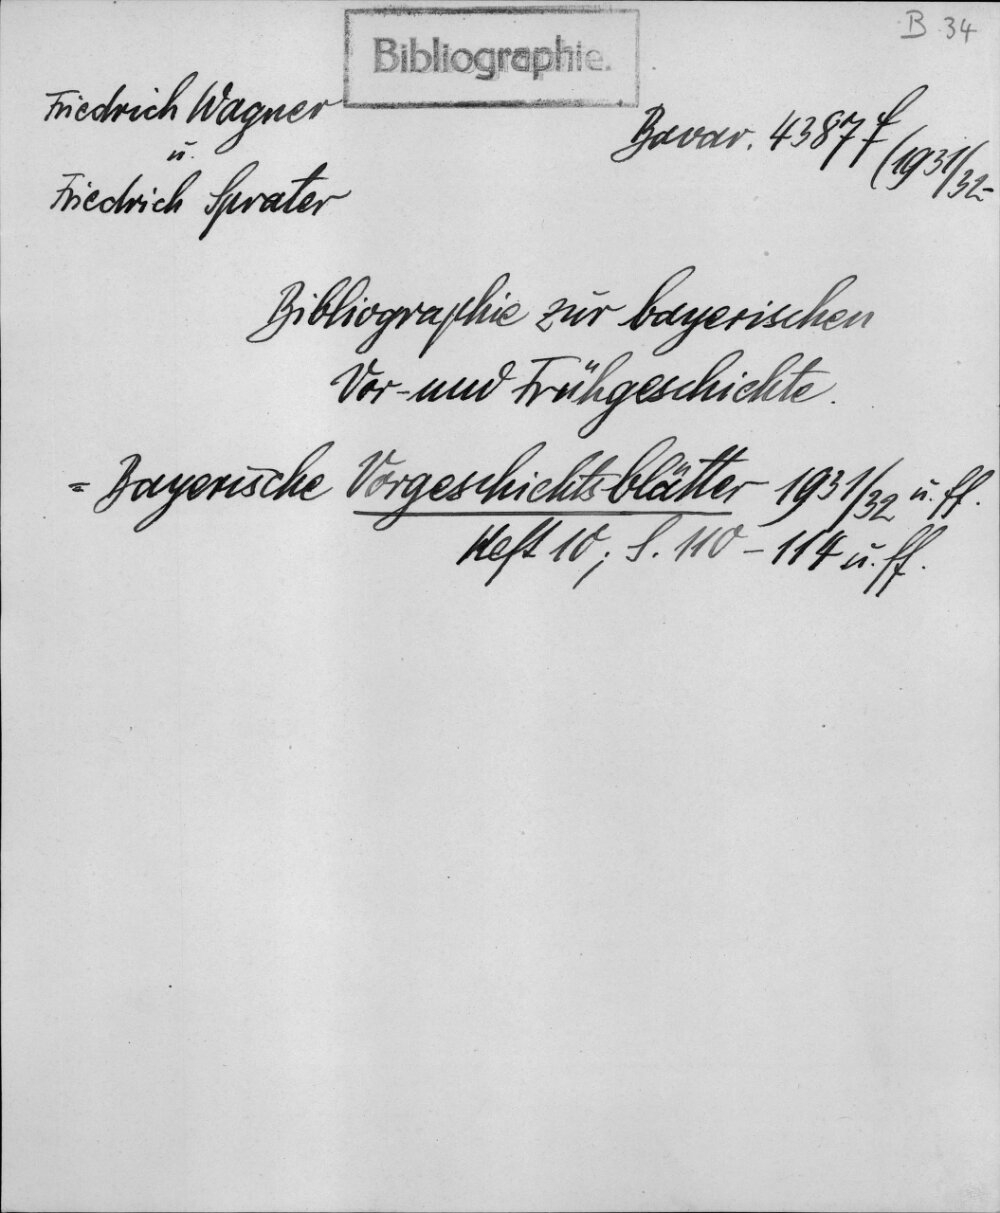 Bibliographie.
B 34
Friedrich Wagner
u.
Friedrich Sprater
Bavar. 4387 f
(1931/32-
Bibliographie zur bayerischen
Vor- und Frühgeschichte.
= Bayerische Vorgeschichtsblätter 1931/32 u. ff.
Heft 10; S. 110 - 114 u. ff.